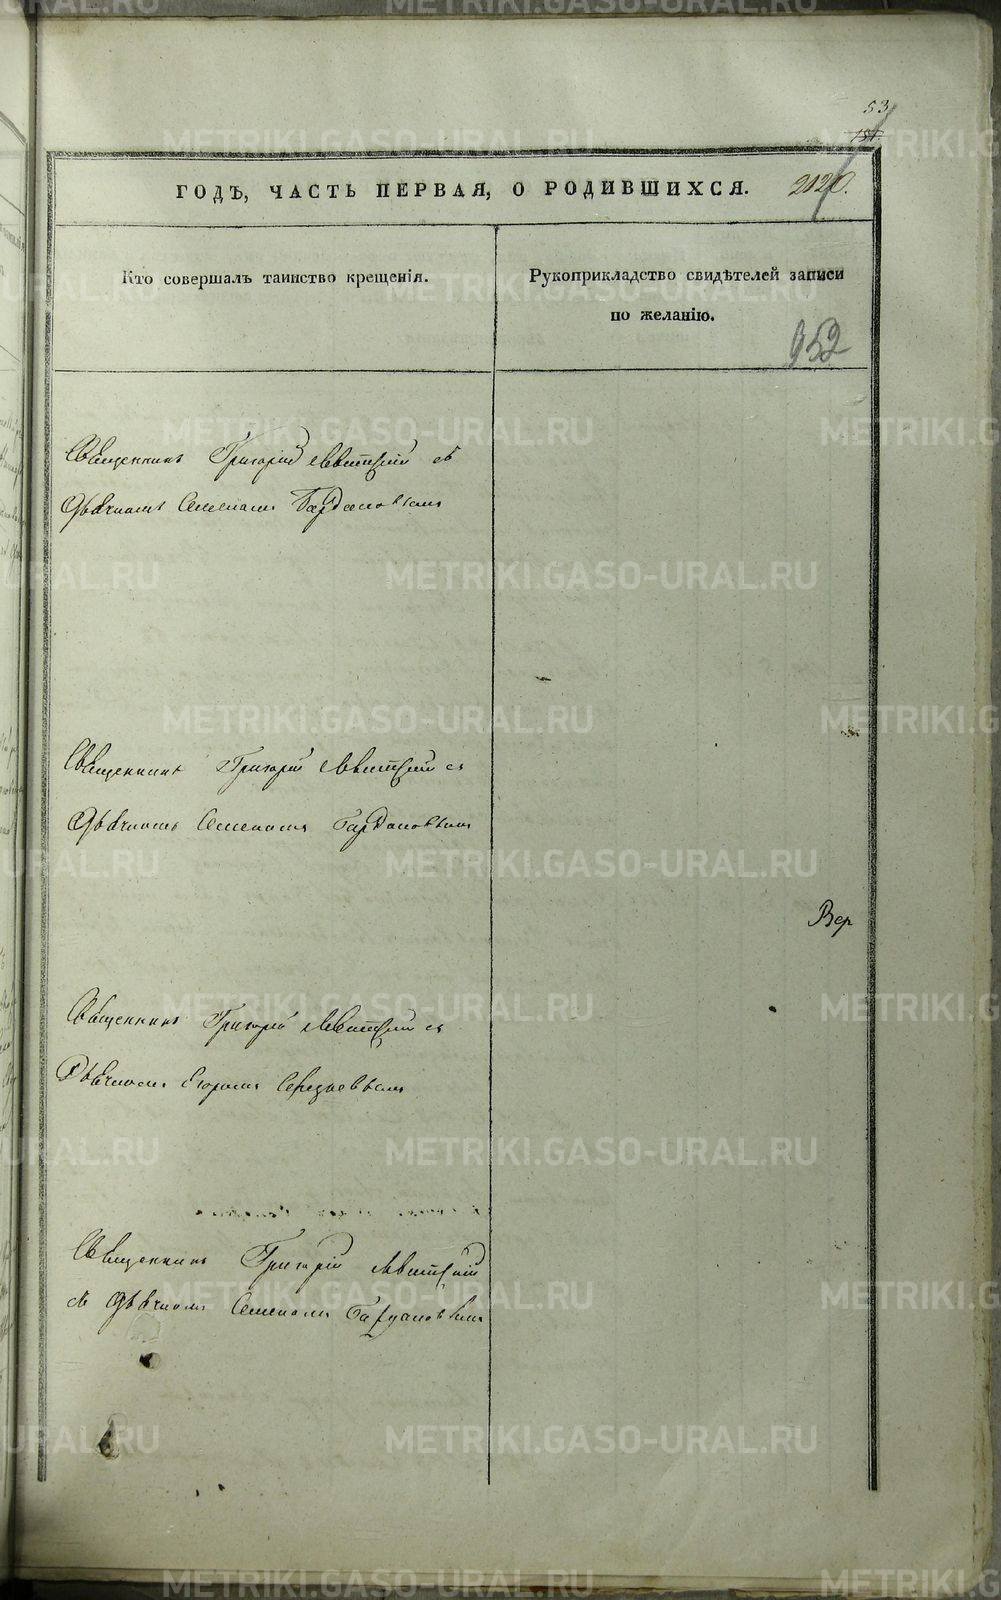 53
151
ГОДЪ, ЧАСТЬ ПЕРВАЯ, О РОДИВШИХСЯ. 2020.
Кто совершалъ таинство крещенія.
Рукоприкладство свидѣтелей записи
по желанію.
952
Священникъ Григорій Левитскій съ
Дьячкомъ Семеномъ Бардановымъ
Священникъ Григорій Левитскій съ
Дьячкомъ Семеномъ Бардановымъ
Вер
Священникъ Григорій Левитскій съ
Дьячкомъ Егоромъ
Священникъ Григорій Левитскій
съ Дьячкомъ Семеномъ Бардановымъ
METRIKI.GASO-URAL.RU